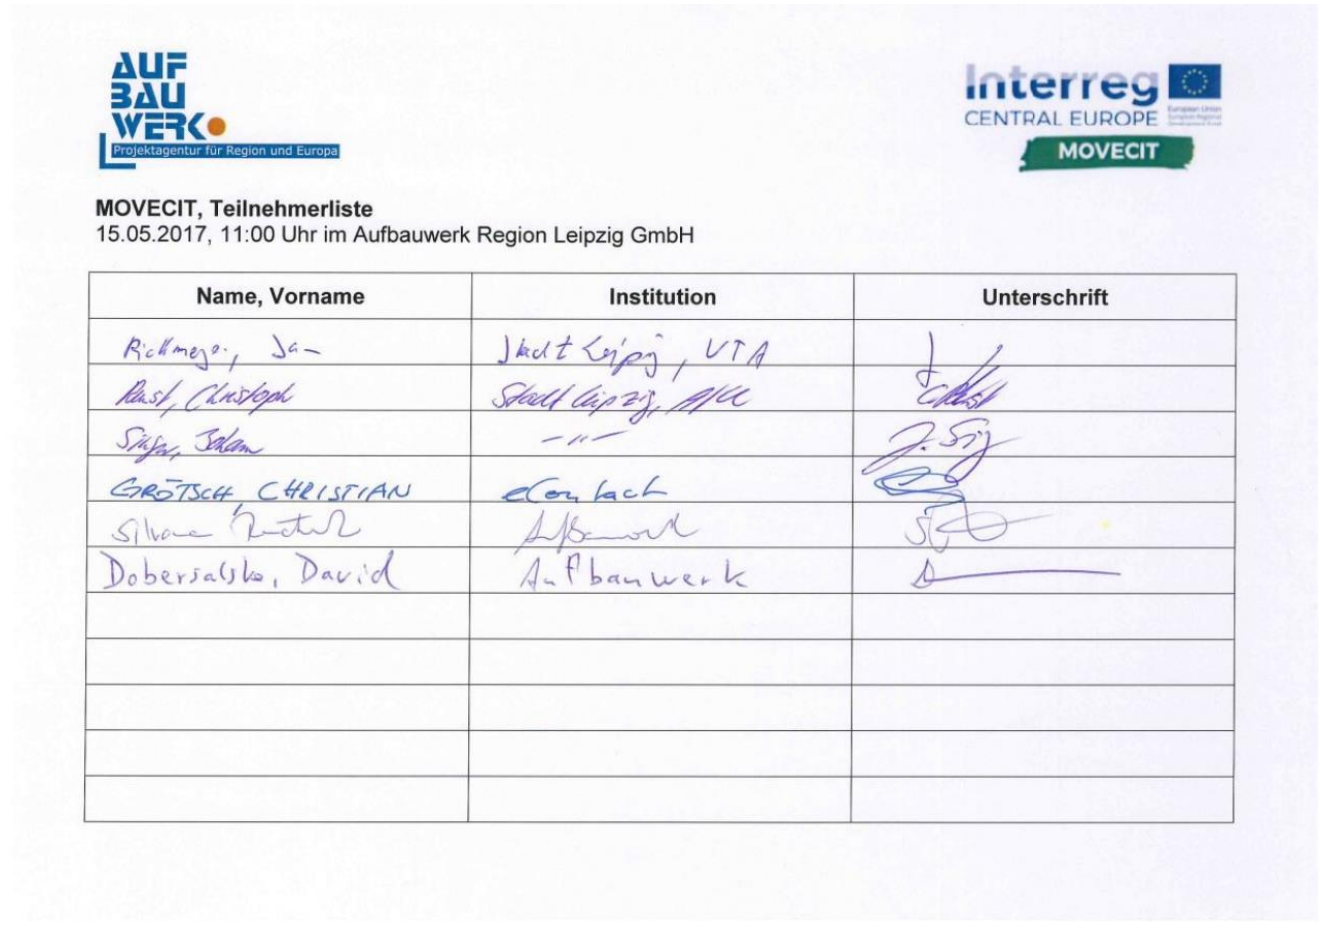 AUF
BAU
WERK
Projektagentur für Region und Europa
Interreg
CENTRAL EUROPE
European Union
European Regional
Development Fund
MOVECIT
MOVECIT, Teilnehmerliste
15.05.2017, 11:00 Uhr im Aufbauwerk Region Leipzig GmbH
Name, Vorname Institution Unterschrift
Rickmeyer, Jan Stadt Leipzig, VTA
Rust, Christoph Stadt Leipzig,
-"- J.
GRÖTSCH, CHRISTIAN
Silvana Aufbauwerk
Dobersalske, David Aufbauwerk